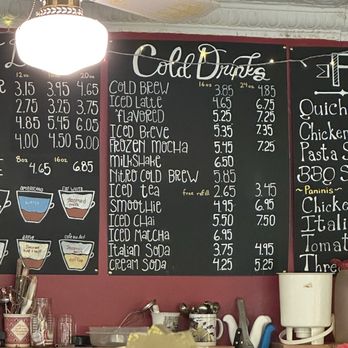 12oz 16oz 20oz
3.15 3.95 4.65
2.75 3.25 3.75
4.85 5.45 6.05
4.00 4.50 5.00
8oz 4.65 16oz 6.85
Americano Flat White
Cold Drinks
16oz 24oz
Cold Brew 3.85 4.85
Iced Latte 4.65 6.75
Flavored 5.25 7.25
Iced Breve 5.35 7.35
Frozen Mocha 5.45 7.25
Milkshake 6.50
Nitro Cold Brew 5.85
Iced Tea free refill 2.65 3.45
Smoothie 4.95 6.95
Iced Chai 5.50 7.50
Iced Matcha 6.95
Italian Soda 3.75 4.95
Cream Soda 4.25 5.25
Quich
Chicken
Pasta S
BBQ S
~Paninis~
Chicke
Itali
Tomat
Three